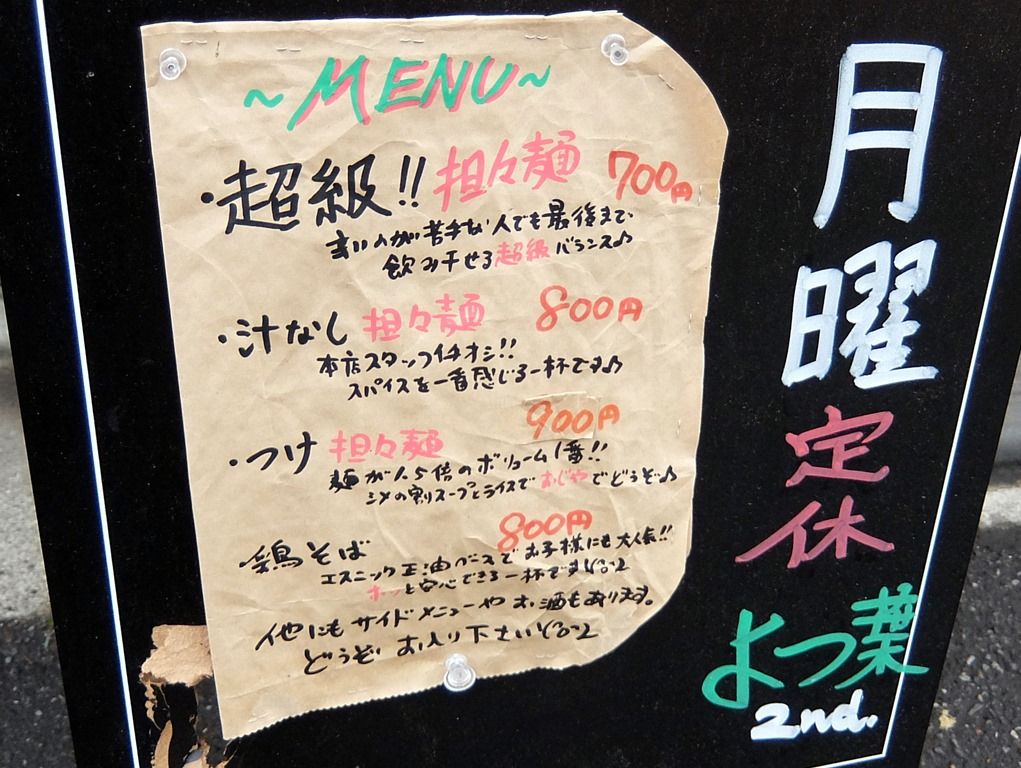 ~MENU~
・超級!! 担々麺 700円
辛いのが苦手な人でも最後まで
飲み干せる超級バランス♪
・汁なし 担々麺 800円
本店スタッフイチオシ!!
スパイスを一番感じる一杯です♪
・つけ 担々麺 900円
麺が1.5倍のボリューム1番!!
シメの割りスープとライスでおじやでどうぞ♪
・鶏そば 800円
エスニック王油ベースでお子様にも大人気!!
ホッと安心できる一杯です
他にもサイドメニューやお酒もあります。
どうぞ お入り下さい
月曜
定休
よつ葉
2nd.